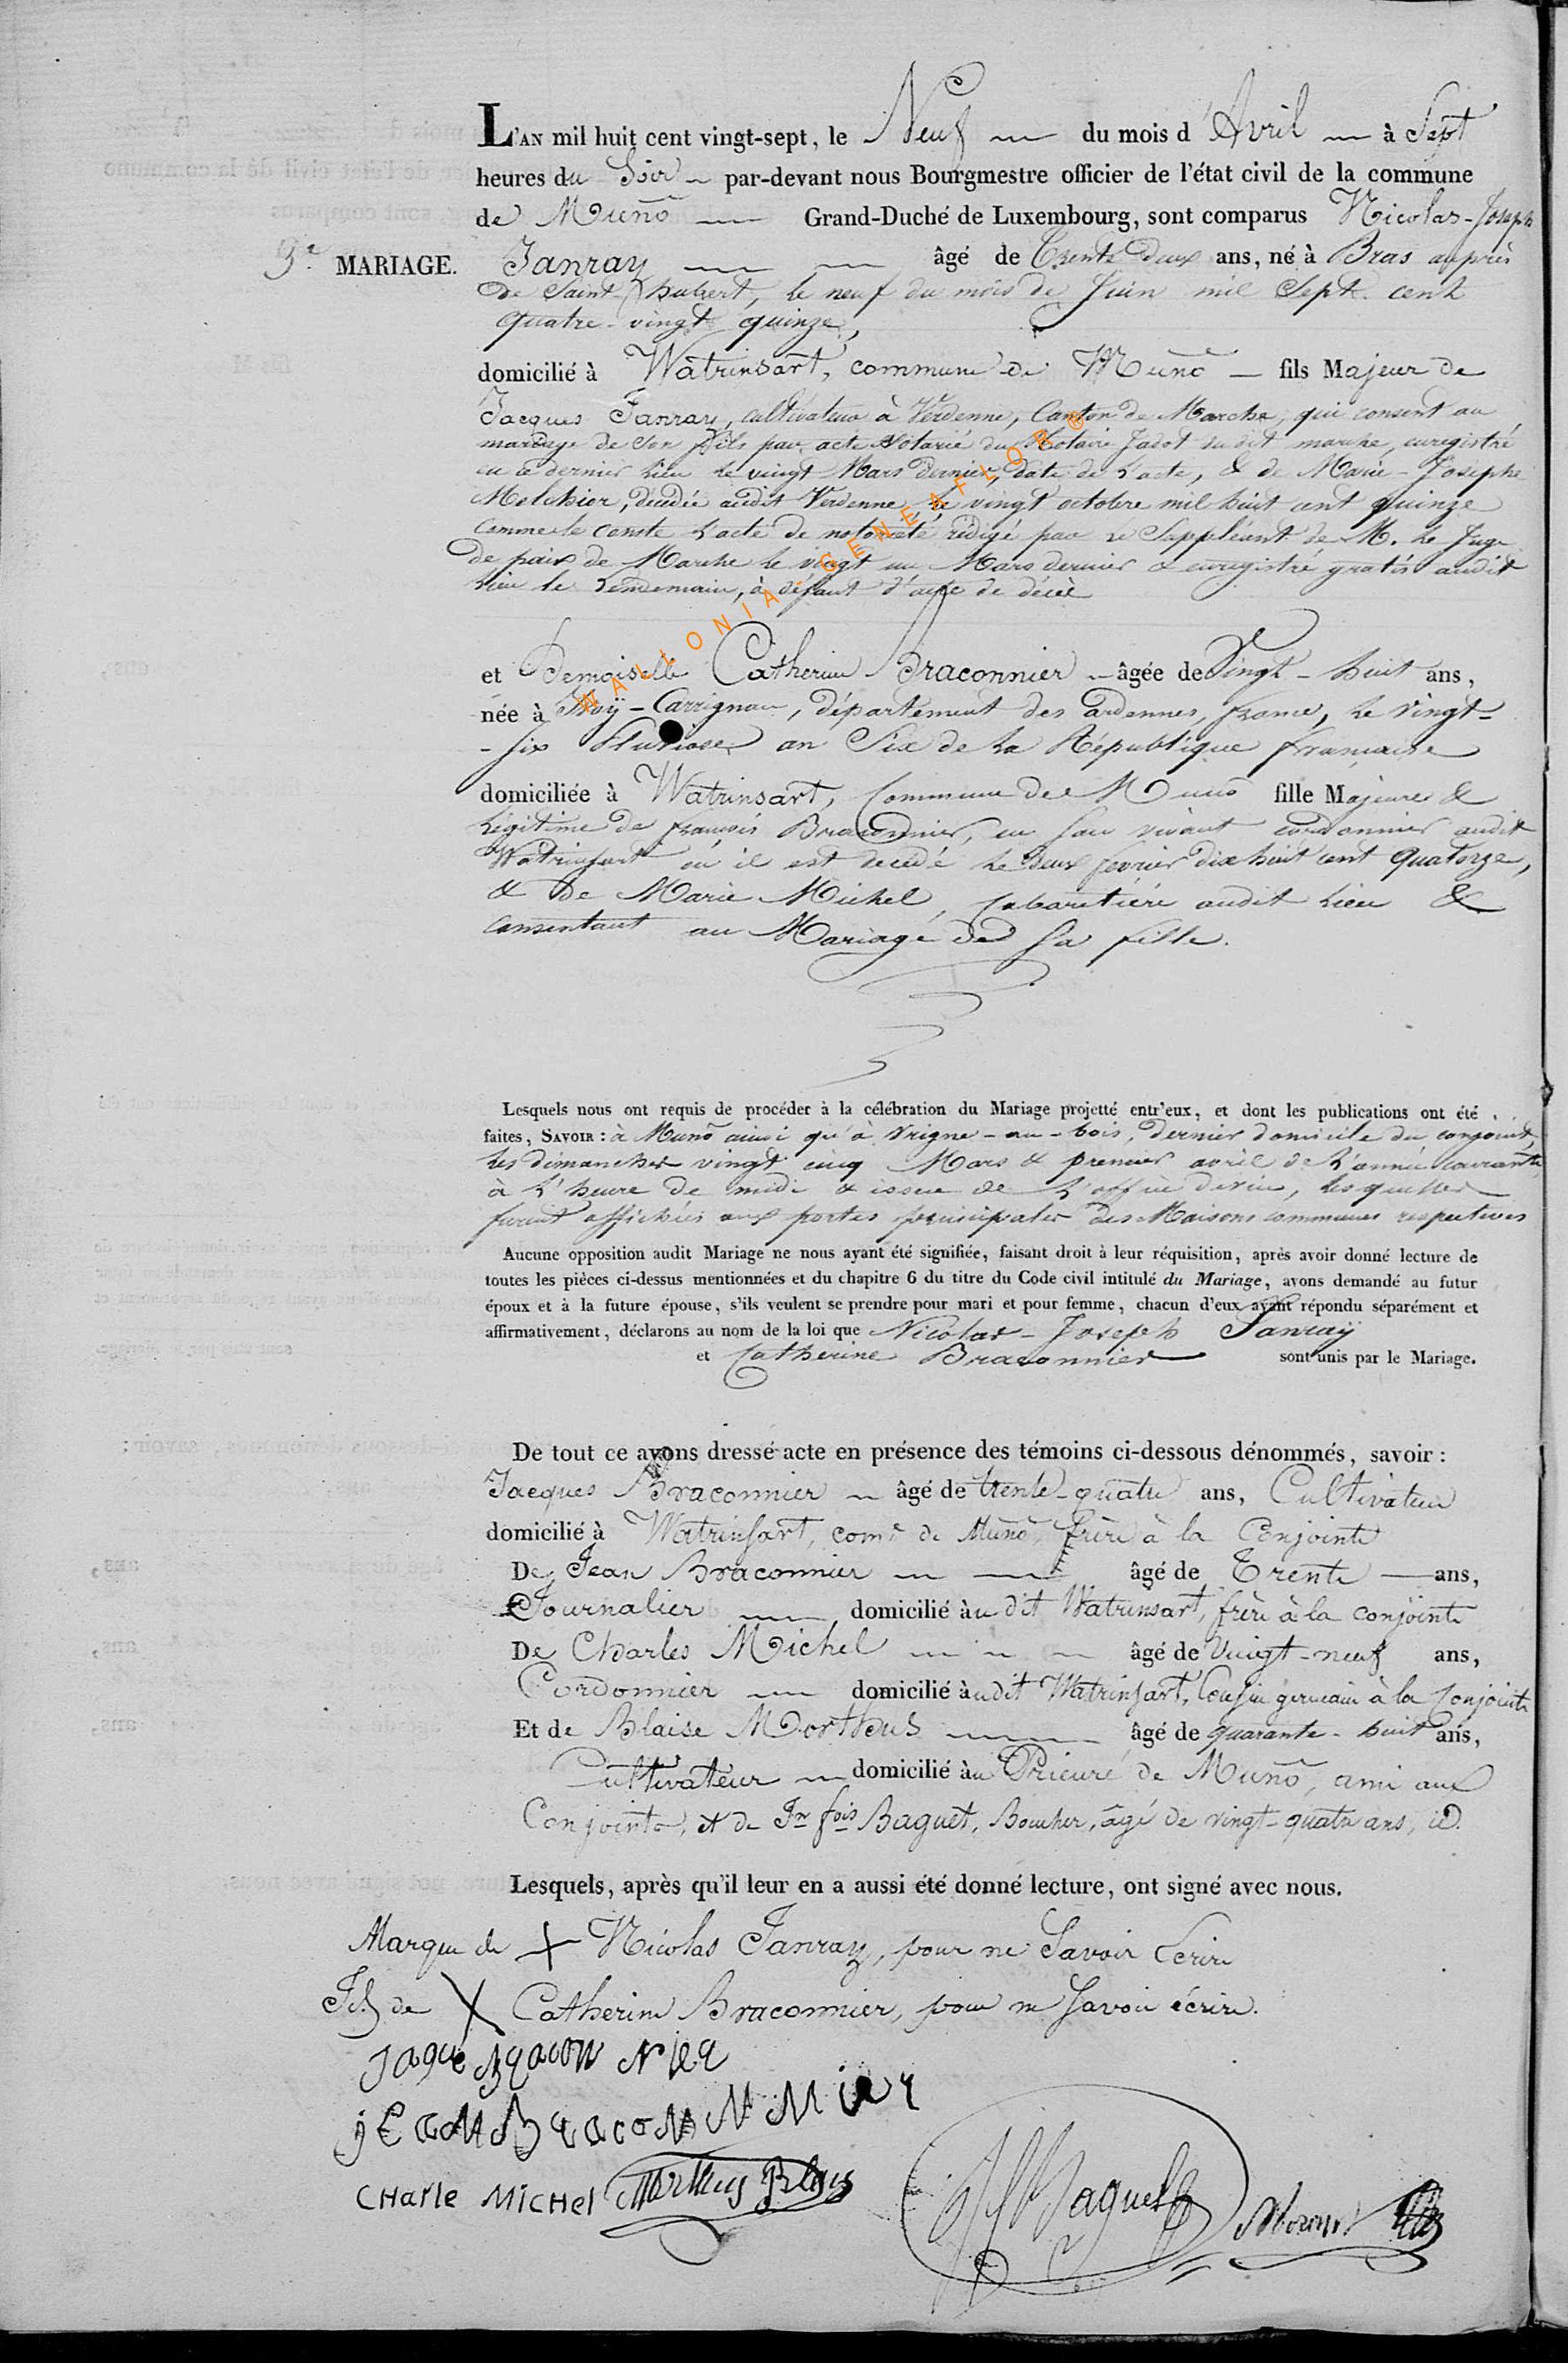 L'AN mil huit cent vingt-sept, le Neuf du mois d'Avril à Sept
heures du Soir par-devant nous Bourgmestre officier de l'état civil de la commune
de Muno Grand-Duché de Luxembourg, sont comparus Nicolas-Joseph
3e MARIAGE. Janray âgé de Trente deux ans, né à Bras auprès
de Saint hubert, le neuf du mois de Juin mil Sept cent
quatre-vingt quinze,
domicilié à Watrinsart, commune de Muno fils Majeur de
Jacques Janray, cultivateur à Verdenne, Canton de Marche, qui consent au
mariage de son fils par acte Notarié du Notaire Jadot du dit marche, enregistré
en ce dernier lieu le vingt Mars dernier, date de l'acte, & de Marie-Josephe
Melchior, décédée audit Verdenne le vingt octobre mil huit cent quinze
comme le conste l'acte de notoriété rédigé par le Suppléant de M. le Juge
de paix de Marche le vingt un Mars dernier & enregistré gratis audit
lieu le lendemain, à défaut d'acte de décès
et Demoiselle Catherine Braconnier âgée de Vingt-huit ans,
née à Ivoÿ-Carrignan, département des ardennes, france, le vingt-
-six Pluviose an Six de la République française
domiciliée à Watrinsart, Commune de Muno fille Majeure &
légitime de françois Braconnier, en son vivant cordonnier audit
Watrinsart où il est décédé le deux fevrier dix huit cent quatorze,
& de Marie Michel, cabaretière audit lieu &
consentant au Mariage de sa fille.
Lesquels nous ont requis de procéder à la célébration du Mariage projetté entr'eux, et dont les publications ont été
faites, SAVOIR : à Muno ainsi qu'à Vrigne-au-bois, dernier domicile du conjoint,
les dimanches vingt cinq Mars & premier avril de l'année courante
à l'heure de midi & issue de l'office divin, lesquelles
furent affichées aux portes principales des Maisons communes respectives
Aucune opposition audit Mariage ne nous ayant été signifiée, faisant droit à leur réquisition, après avoir donné lecture de
toutes les pièces ci-dessus mentionnées et du chapitre 6 du titre du Code civil intitulé du Mariage, avons demandé au futur
époux et à la future épouse, s'ils veulent se prendre pour mari et pour femme, chacun d'eux ayant répondu séparément et
affirmativement, déclarons au nom de la loi que Nicolas-Joseph Janraÿ
et Catherine Braconnier sont unis par le Mariage.
De tout ce avons dressé acte en présence des témoins ci-dessous dénommés, savoir :
Jacques Braconnier âgé de trente-quatre ans, Cultivateur
domicilié à Watrinsart, come de Muno, frère à la Conjointe
De Jean Braconnier âgé de Trente ans,
Journalier domicilié au dit Watrinsart, frère à la conjointe
De Charles Michel âgé de Vingt-neuf ans,
Cordonnier domicilié audit Watrinsart, Cousin germain à la Conjointe
Et de Blaise Morthus âgé de quarante-huit ans,
Cultivateur domicilié au Prieuré de Muno, ami aux
Conjoints, et de Jn fois Baguet, Boucher, âgé de vingt-quatre ans, id.
Lesquels, après qu'il leur en a aussi été donné lecture, ont signé avec nous.
Marque de + Nicolas Janray, pour ne Savoir Ecrire
Id. de X Catherine Braconnier, pour ne Savoir écrire.
Jaque Bracon Nier
jEan BracoNNMier
CHarle MicHel Morthus Blais
JfBaguet
WALLONIA - GENEAFLOR ®